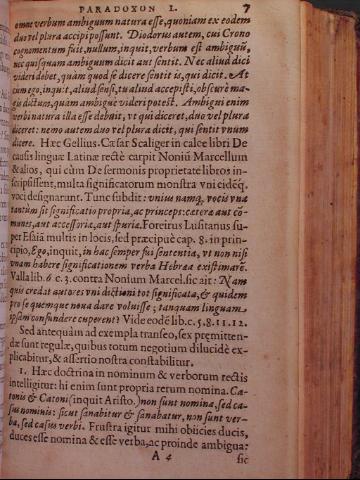 PARADOXON I. 7
omne verbum ambiguum natura esse, quoniam ex eodem
duo vel plura accipi possunt. Diodorus autem, cui Crono
cognomentum fuit, nullum, inquit, verbum est ambiguū,
nec quisquam ambiguum dicit aut sentit. Nec aliud dici
videri debet, quàm quod se dicere sentit is, qui dicit. At
cum ego, inquit, aliud sensi, tu aliud accepisti, obscurè ma-
gis dictum, quàm ambiguè videri potest. Ambigui enim
verbi natura illa esse debuit, vt qui diceret, duo vel plura
diceret: nemo autem duo vel plura dicit, qui sentit vnum
dicere. Hæc Gellius. Cæsar Scaliger in calce libri De
causis linguæ Latinæ rectè carpit Noniū Marcellum
& alios, qui cùm De sermonis proprietate libros in-
scripsissent, multa significatorum monstra vni eidēq;
voci designarunt. Tunc subdit: vnius namq; vocis vna
tantùm sit significatio propria, ac princeps: cæteræ aut cō-
munes, aut accessoriæ, aut spuriæ. Foreirus Lusitanus su-
per Esaiā multis in locis, sed præcipuè cap. 8. in prin-
cipio, Ego, inquit, in hac semper fui sententia, vt non nisi
vnam habere significationem verba Hebræa existimarē.
Valla lib. 6. c. 3. contra Nonium Marcel. sic ait: Nam
quis credat autores vni dictioni tot significata, & quidem
pro se quemque noua dare voluisse; tanquam linguam
ipsam confundere cuperent? Vide eodē lib. c. 5. 8. 11. 12.
Sed antequàm ad exempla transeo, sex præmitten-
dæ sunt regulæ, quibus totum negotium dilucidè ex-
plicabitur, & assertio nostra constabilitur.
1. Hæc doctrina in nominum & verborum rectis
intelligitur: hi enim sunt propria rerum nomina. Ca-
tonis & Catoni (inquit Aristo.) non sunt nomina, sed ca-
sus nominis: sicut sanabitur & sanabatur, non sunt ver-
ba, sed casus verbi. Frustra igitur mihi obiicies ducis,
duces esse nomina & esse verba, ac proinde ambigua:
A 4 sic